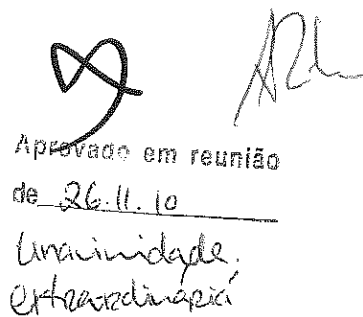 Aprovado em reunião
de 26.11.10
Unanimidade.
extraordinária